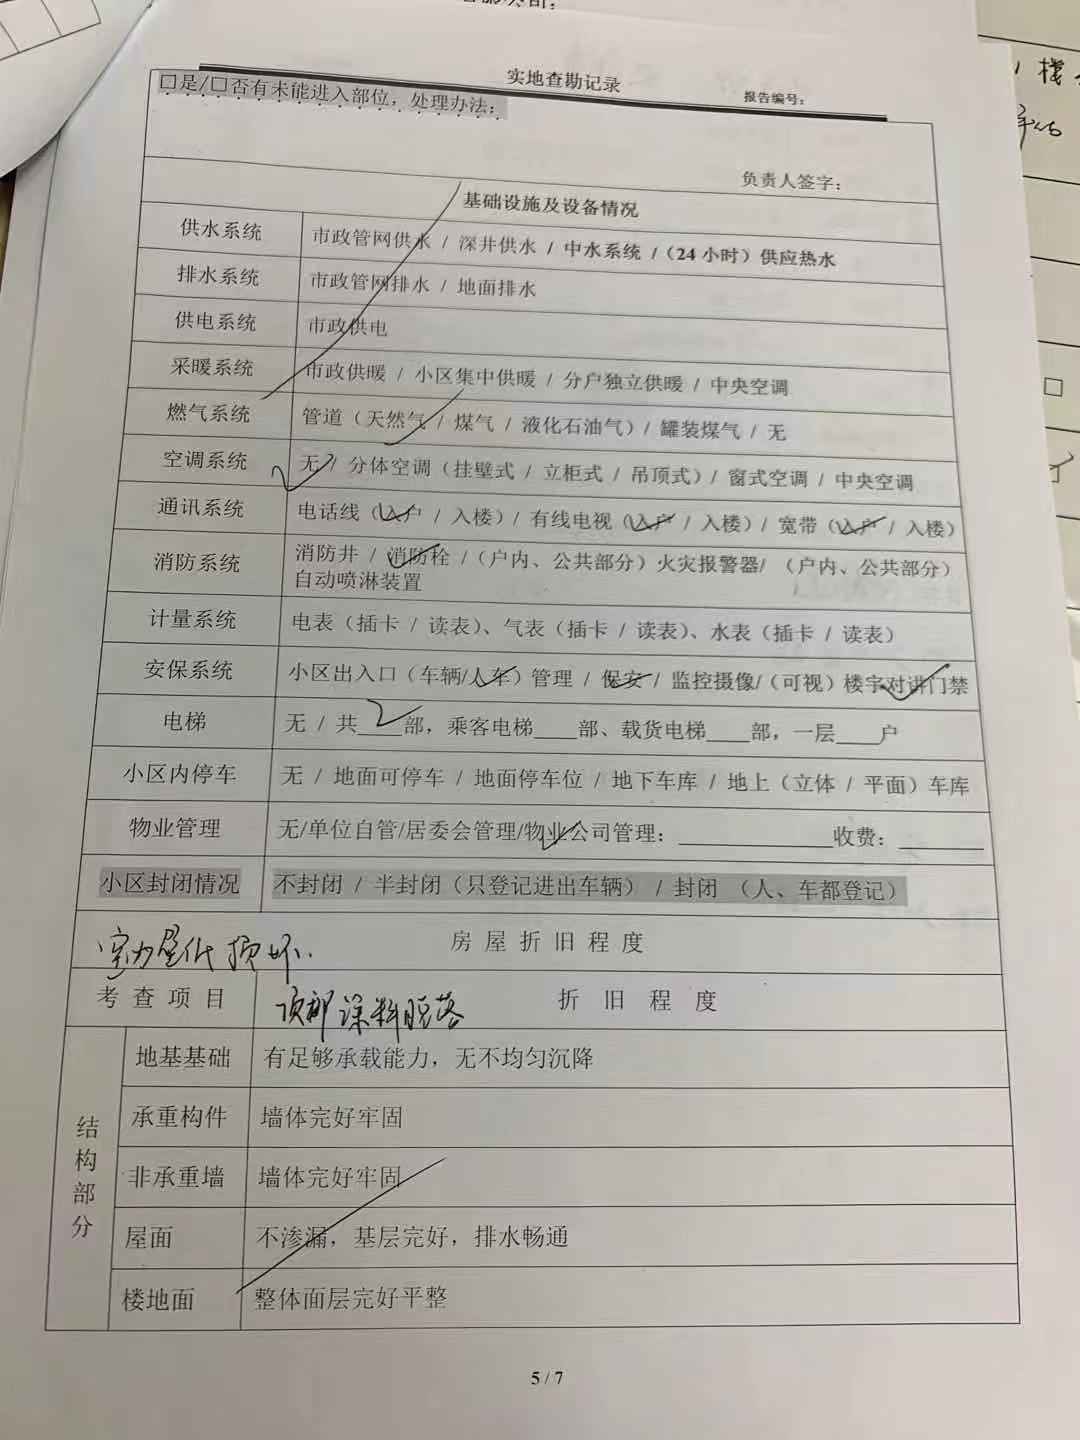 实地查勘记录
报告编号：
□是/□否有未能进入部位，处理办法：
负责人签字：
基础设施及设备情况
供水系统 市政管网供水 / 深井供水 / 中水系统 /（24 小时）供应热水
排水系统 市政管网排水 / 地面排水
供电系统 市政供电
采暖系统 市政供暖 / 小区集中供暖 / 分户独立供暖 / 中央空调
燃气系统 管道（天然气 / 煤气 / 液化石油气）/ 罐装煤气 / 无
空调系统 无 / 分体空调（挂壁式 / 立柜式 / 吊顶式）/ 窗式空调 / 中央空调
通讯系统 电话线（入户 / 入楼）/ 有线电视（入户 / 入楼）/ 宽带（入户 / 入楼）
消防系统 消防井 / 消防栓 /（户内、公共部分）火灾报警器/ （户内、公共部分）
自动喷淋装置
计量系统 电表（插卡 / 读表）、气表（插卡 / 读表）、水表（插卡 / 读表）
安保系统 小区出入口（车辆/人车）管理 / 保安 / 监控摄像/（可视）楼宇对讲门禁
电梯 无 / 共 2 部，乘客电梯____部、载货电梯____部，一层____户
小区内停车 无 / 地面可停车 / 地面停车位 / 地下车库 / 地上（立体 / 平面）车库
物业管理 无/单位自管/居委会管理/物业公司管理：______________收费：________
小区封闭情况 不封闭 / 半封闭（只登记进出车辆） / 封闭 （人、车都登记）
房屋折旧程度
损坏.
考查项目 折旧程度
顶部涂料脱落
结构部分
地基基础 有足够承载能力，无不均匀沉降
承重构件 墙体完好牢固
非承重墙 墙体完好牢固
屋面 不渗漏，基层完好，排水畅通
楼地面 整体面层完好平整
5 / 7